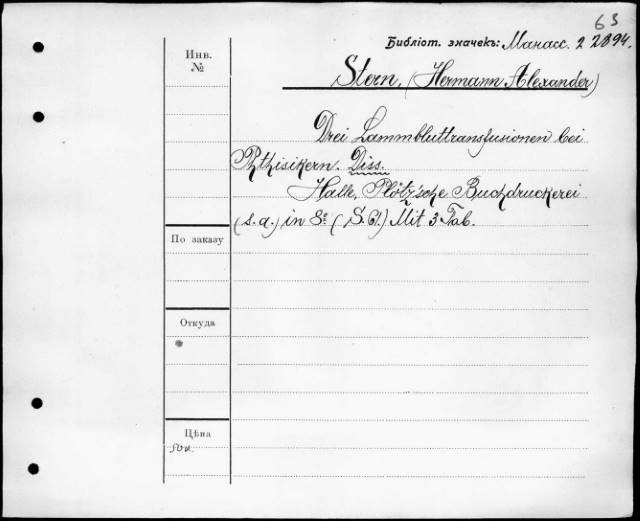 63
Библіот. значекъ: Манасс. 2 2894.
Инв.
№
Stern, (Hermann Alexander)
Drei Lammbluttransfusionen bei
Phthisikern. Diss.
Halle, Plötz'sche Buchdruckerei
(s.a.) in 8º (S. 61.) Mit 3 Tab.
По заказу
Откуда
Цѣна
50к.